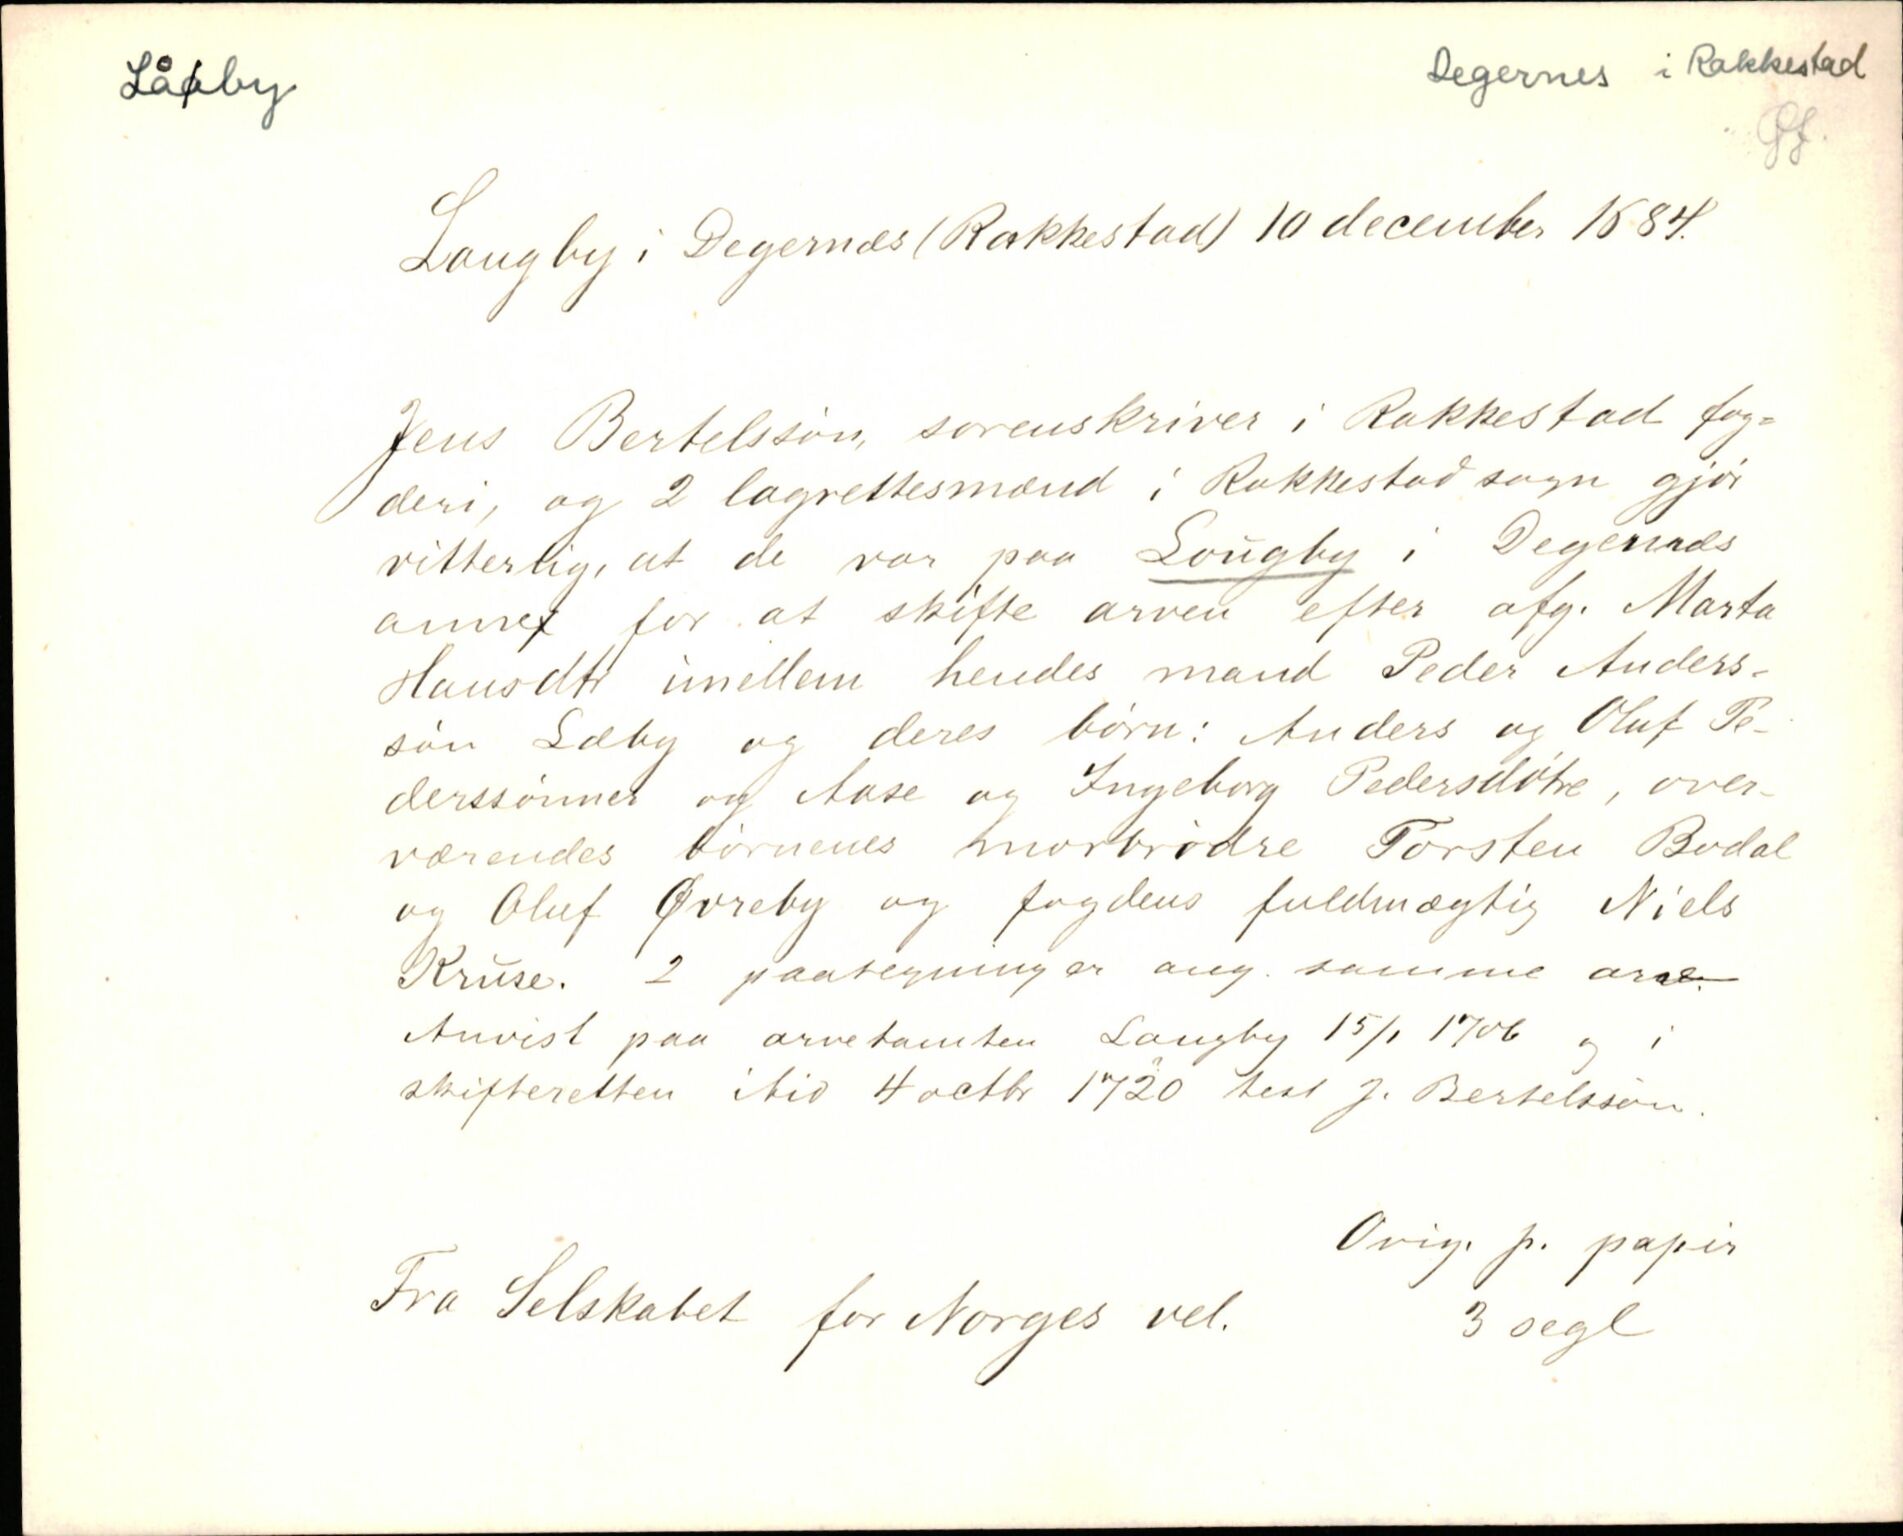 Låby
Degernes i Rakkestad
Øf.
Laugby i Degernæs (Rakkestad) 10 december 1684.
Jens Bertelssøn, sorenskriver i Rakkestad fog=
deri, og 2 lagrettesmænd i Rakkestad sogn gjør
vitterlig, at de var paa Lougby i Degernæs
annex for at skifte arven efter afg. Marta
Hansdtr imellem hendes mand Peder Anders-
søn Læby og deres børn: Anders og Oluf Pe-
derssønner og Aase og Ingeborg Pedersdøtre, over-
værendes børnenes morbrødre Torsten Bodal
og Oluf Øvreby og fogdens fuldmægtig Niels
Kruse. 2 paategninger ang. samme arv.
Anvist paa arvetomten Laugby 15/1 1706 og i
skifteretten ibid 4 octbr 1720 test J. Bertelssøn.
Orig. p. papir
Fra Selskabet for Norges vel.
3 segl